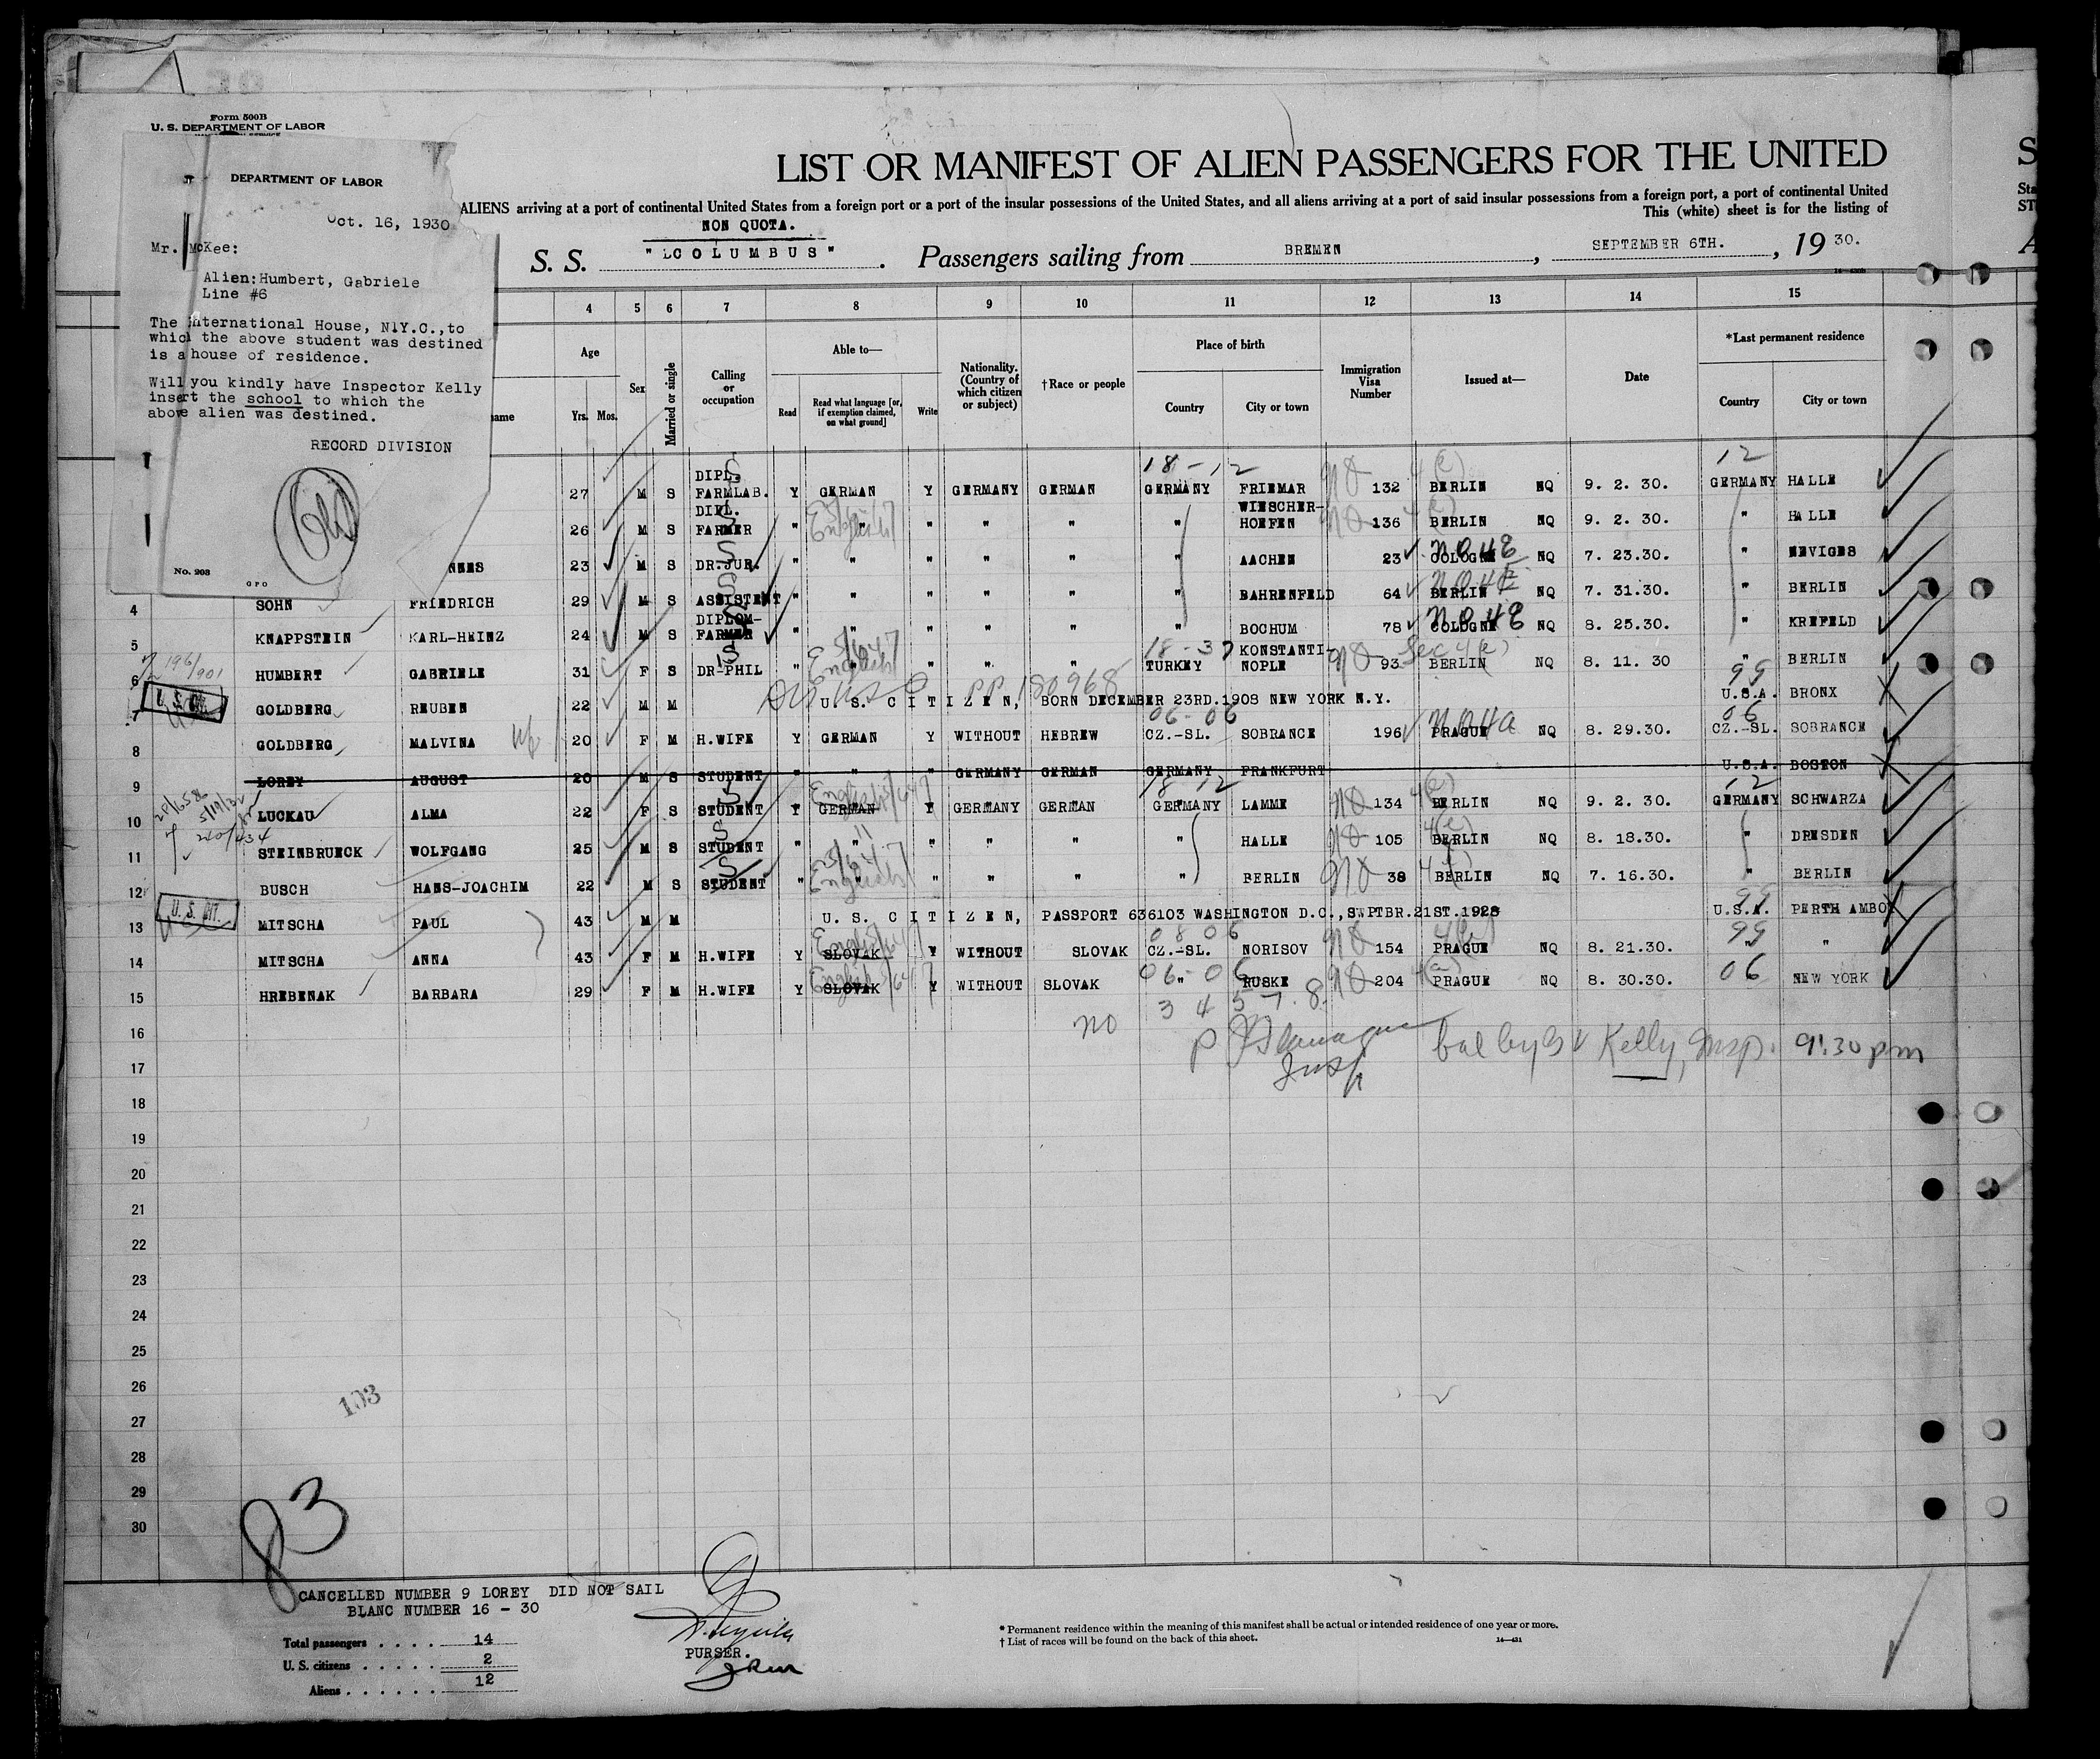 Form 500B
U. S. DEPARTMENT OF LABOR
DEPARTMENT OF LABOR
Oct. 16, 1930
Mr. McKee:
Alien: Humbert, Gabriele
Line #6
The International House, N.Y.C., to
which the above student was destined
is a house of residence.
Will you kindly have Inspector Kelly
insert the school to which the
above alien was destined.
RECORD DIVISION
No. 203
GPO
LIST OR MANIFEST OF ALIEN PASSENGERS FOR THE UNITED
ALIENS arriving at a port of continental United States from a foreign port or a port of the insular possessions of the United States, and all aliens arriving at a port of said insular possessions from a foreign port, a port of continental United
This (white) sheet is for the listing of
NON QUOTA.
S. S. "COLUMBUS". Passengers sailing from BREMEN, SEPTEMBER 6TH., 19 30.
4 5 6 7 8 9 10 11 12 13 14 15
Age Yrs. Mos. Sex Married or single Calling or occupation Able to— Read Read what language [or, if exemption claimed, on what ground] Write Nationality. (Country of which citizen or subject) †Race or people Place of birth Country City or town Immigration Visa Number Issued at— Date *Last permanent residence Country City or town
18-12 12
27 M S DIPL. FARMLAB. Y GERMAN Y GERMANY GERMAN GERMANY FRIEMAR 132 BERLIN NQ 9. 2. 30. GERMANY HALLE
26 M S DIPL. FARMER " English " " " " " WIESCHER-HOEFEN 136 BERLIN NQ 9. 2. 30. " HALLE
NNES 23 M S DR.JUR. " " " " " " AACHEN 23 COLOGNE NQ 7. 23.30. " NEVIGES
4 SOHN FRIEDRICH 29 M S ASSISTENT " " " " " " BAHRENFELD 64 BERLIN NQ 7. 31.30. " BERLIN
5 KNAPPSTEIN KARL-HEINZ 24 M S DIPLOM-FARMER " " " " " " BOCHUM 78 COLOGNE NQ 8. 25.30. " KREFELD
6 HUMBERT GABRIELE 31 F S DR-PHIL " English " " " " TURKEY KONSTANTI-NOPLE 93 Sec 4(e) BERLIN NQ 8. 11. 30 " BERLIN
7 GOLDBERG REUBEN 22 M M U. S. CITIZEN, BORN DECEMBER 23RD.1908 NEW YORK N.Y. U.S.A. BRONX
8 GOLDBERG MALVINA 20 F M H.WIFE Y GERMAN Y WITHOUT HEBREW CZ.-SL. SOBRANCE 196 PRAGUE NQ 8. 29.30. CZ.-SL. SOBRANCE
9 LOREY AUGUST 20 M S STUDENT " " " GERMANY GERMAN GERMANY FRANKFURT U.S.A. BOSTON
10 LUCKAU ALMA 22 F S STUDENT Y GERMAN English Y GERMANY GERMAN GERMANY LAMME 134 BERLIN NQ 9. 2. 30. GERMANY SCHWARZA
11 STEINBRUECK WOLFGANG 25 M S STUDENT " " " " " " HALLE 105 BERLIN NQ 8. 18.30. " DRESDEN
12 BUSCH HANS-JOACHIM 22 M S STUDENT " English " " " " " BERLIN 38 BERLIN NQ 7. 16.30. " BERLIN
U. S. CIT.
13 MITSCHA PAUL 43 M M U. S. CITIZEN, PASSPORT 636103 WASHINGTON D.C.,SWPTBR.21ST.1928 U.S.A. PERTH AMBOY
14 MITSCHA ANNA 43 F M H.WIFE Y SLOVAK English Y WITHOUT SLOVAK CZ.-SL. NORISOV 154 PRAGUE NQ 8. 21.30. " "
15 HREBENAK BARBARA 29 F M H.WIFE Y SLOVAK English Y WITHOUT SLOVAK " RUSKE 204 PRAGUE NQ 8. 30.30. 06 NEW YORK
16 no 3 4 5 7. 8.
17 Insp Kelly, Insp. 9:30 pm
18
19
20
21
22
23
24
25
26
27
28
29
30
103
83
CANCELLED NUMBER 9 LOREY DID NOT SAIL
BLANC NUMBER 16 - 30
Total passengers . . . . 14
U. S. citizens . . . . . 2
Aliens . . . . . . 12
PURSER.
* Permanent residence within the meaning of this manifest shall be actual or intended residence of one year or more.
† List of races will be found on the back of this sheet.